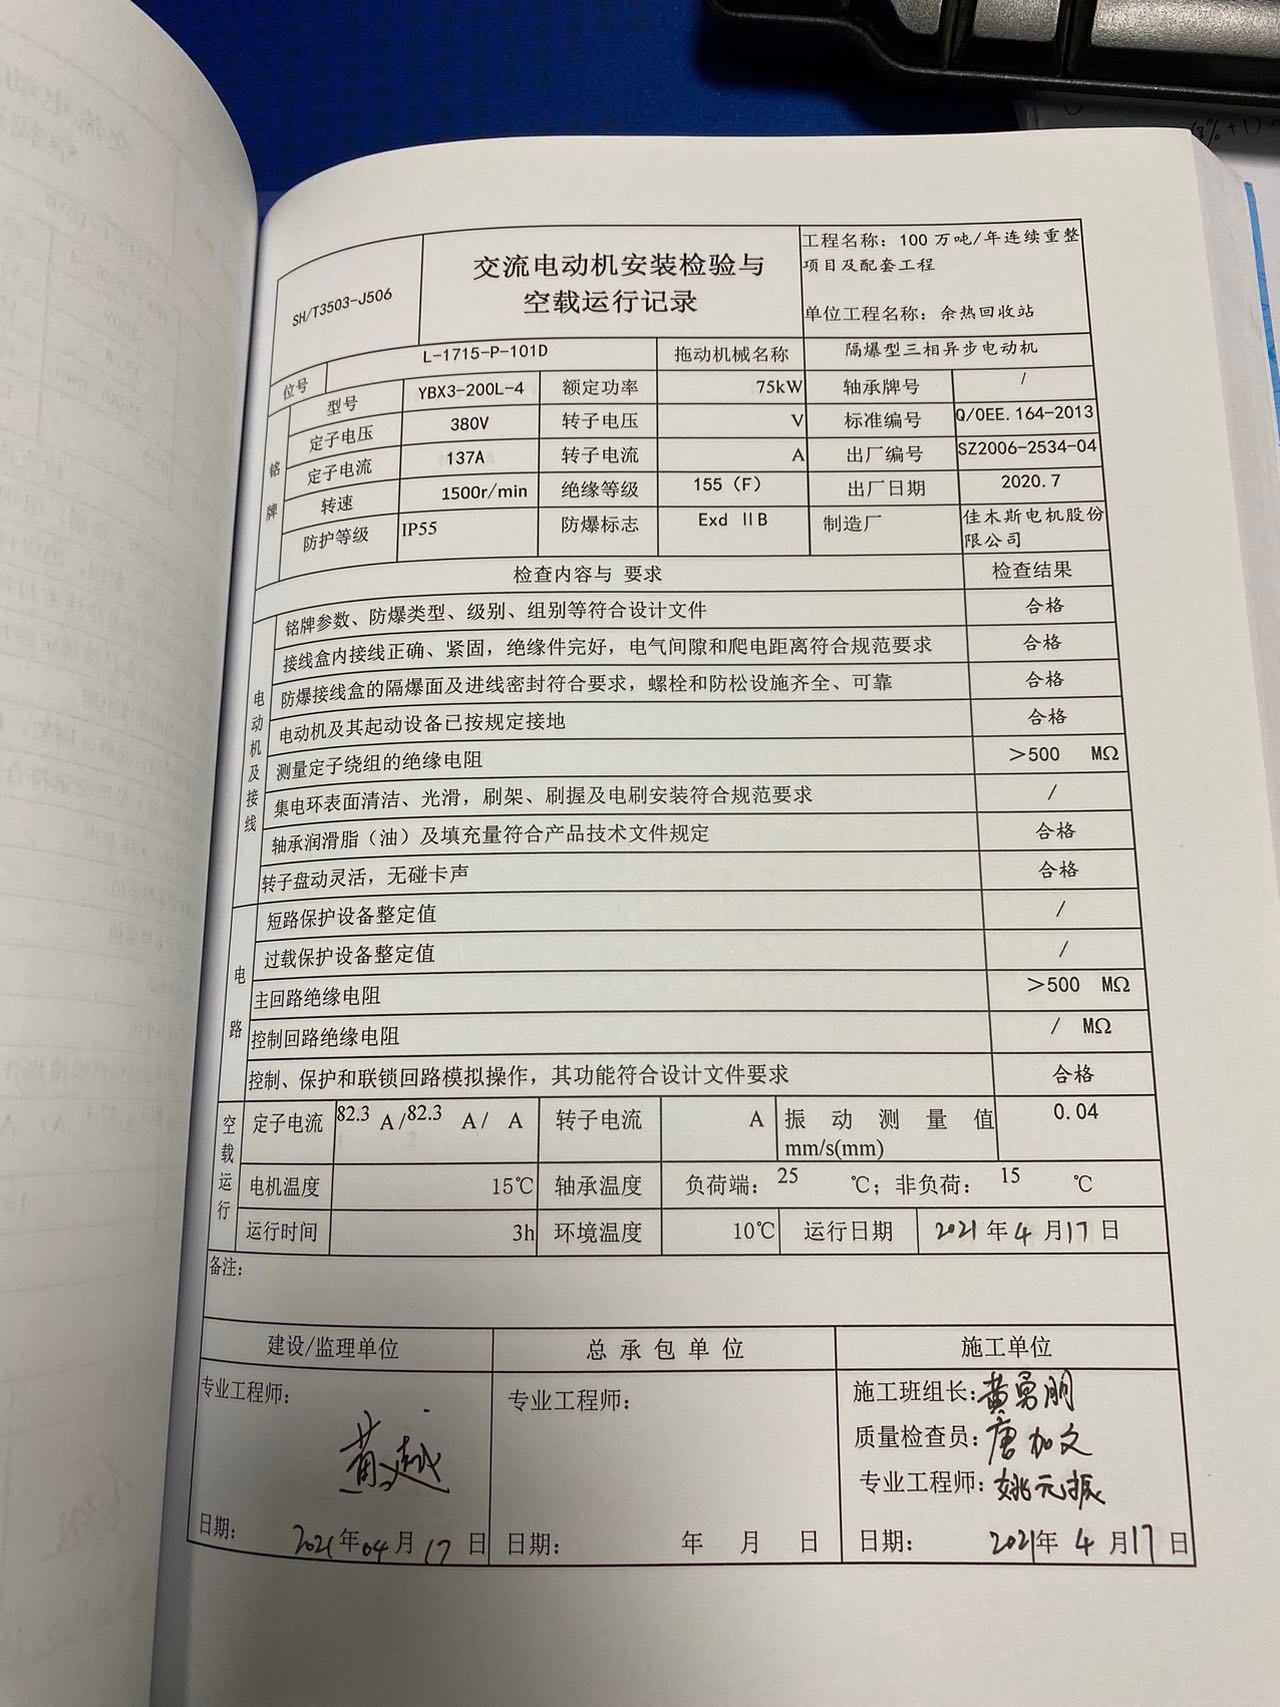 SH/T3503-J506
交流电动机安装检验与
空载运行记录
工程名称：100 万吨/年连续重整
项目及配套工程
单位工程名称：余热回收站
位号 L-1715-P-101D 拖动机械名称 隔爆型三相异步电动机
铭牌
型号 YBX3-200L-4 额定功率 75kW 轴承牌号 /
定子电压 380V 转子电压 V 标准编号 Q/OEE.164-2013
定子电流 137A 转子电流 A 出厂编号 SZ2006-2534-04
转速 1500r/min 绝缘等级 155（F） 出厂日期 2020.7
防护等级 IP55 防爆标志 Exd ⅡB 制造厂 佳木斯电机股份
限公司
检查内容与 要求 检查结果
电动机及接线
铭牌参数、防爆类型、级别、组别等符合设计文件 合格
接线盒内接线正确、紧固，绝缘件完好，电气间隙和爬电距离符合规范要求 合格
防爆接线盒的隔爆面及进线密封符合要求，螺栓和防松设施齐全、可靠 合格
电动机及其起动设备已按规定接地 合格
测量定子绕组的绝缘电阻 ＞500 MΩ
集电环表面清洁、光滑，刷架、刷握及电刷安装符合规范要求 /
轴承润滑脂（油）及填充量符合产品技术文件规定 合格
转子盘动灵活，无碰卡声 合格
电路
短路保护设备整定值 /
过载保护设备整定值 /
主回路绝缘电阻 ＞500 MΩ
控制回路绝缘电阻 / MΩ
控制、保护和联锁回路模拟操作，其功能符合设计文件要求 合格
空载运行
定子电流 82.3 A/82.3 A/ A 转子电流 A 振动测量值 0.04
mm/s(mm)
电机温度 15℃ 轴承温度 负荷端：25 ℃；非负荷：15 ℃
运行时间 3h 环境温度 10℃ 运行日期 2021年4月17日
备注：
建设/监理单位 总承包单位 施工单位
专业工程师： 专业工程师： 施工班组长：黄勇朋
质量检查员：唐加文
黄越
专业工程师：姚元振
日期： 2021年04月17日 日期： 年 月 日 日期： 2021年4月17日